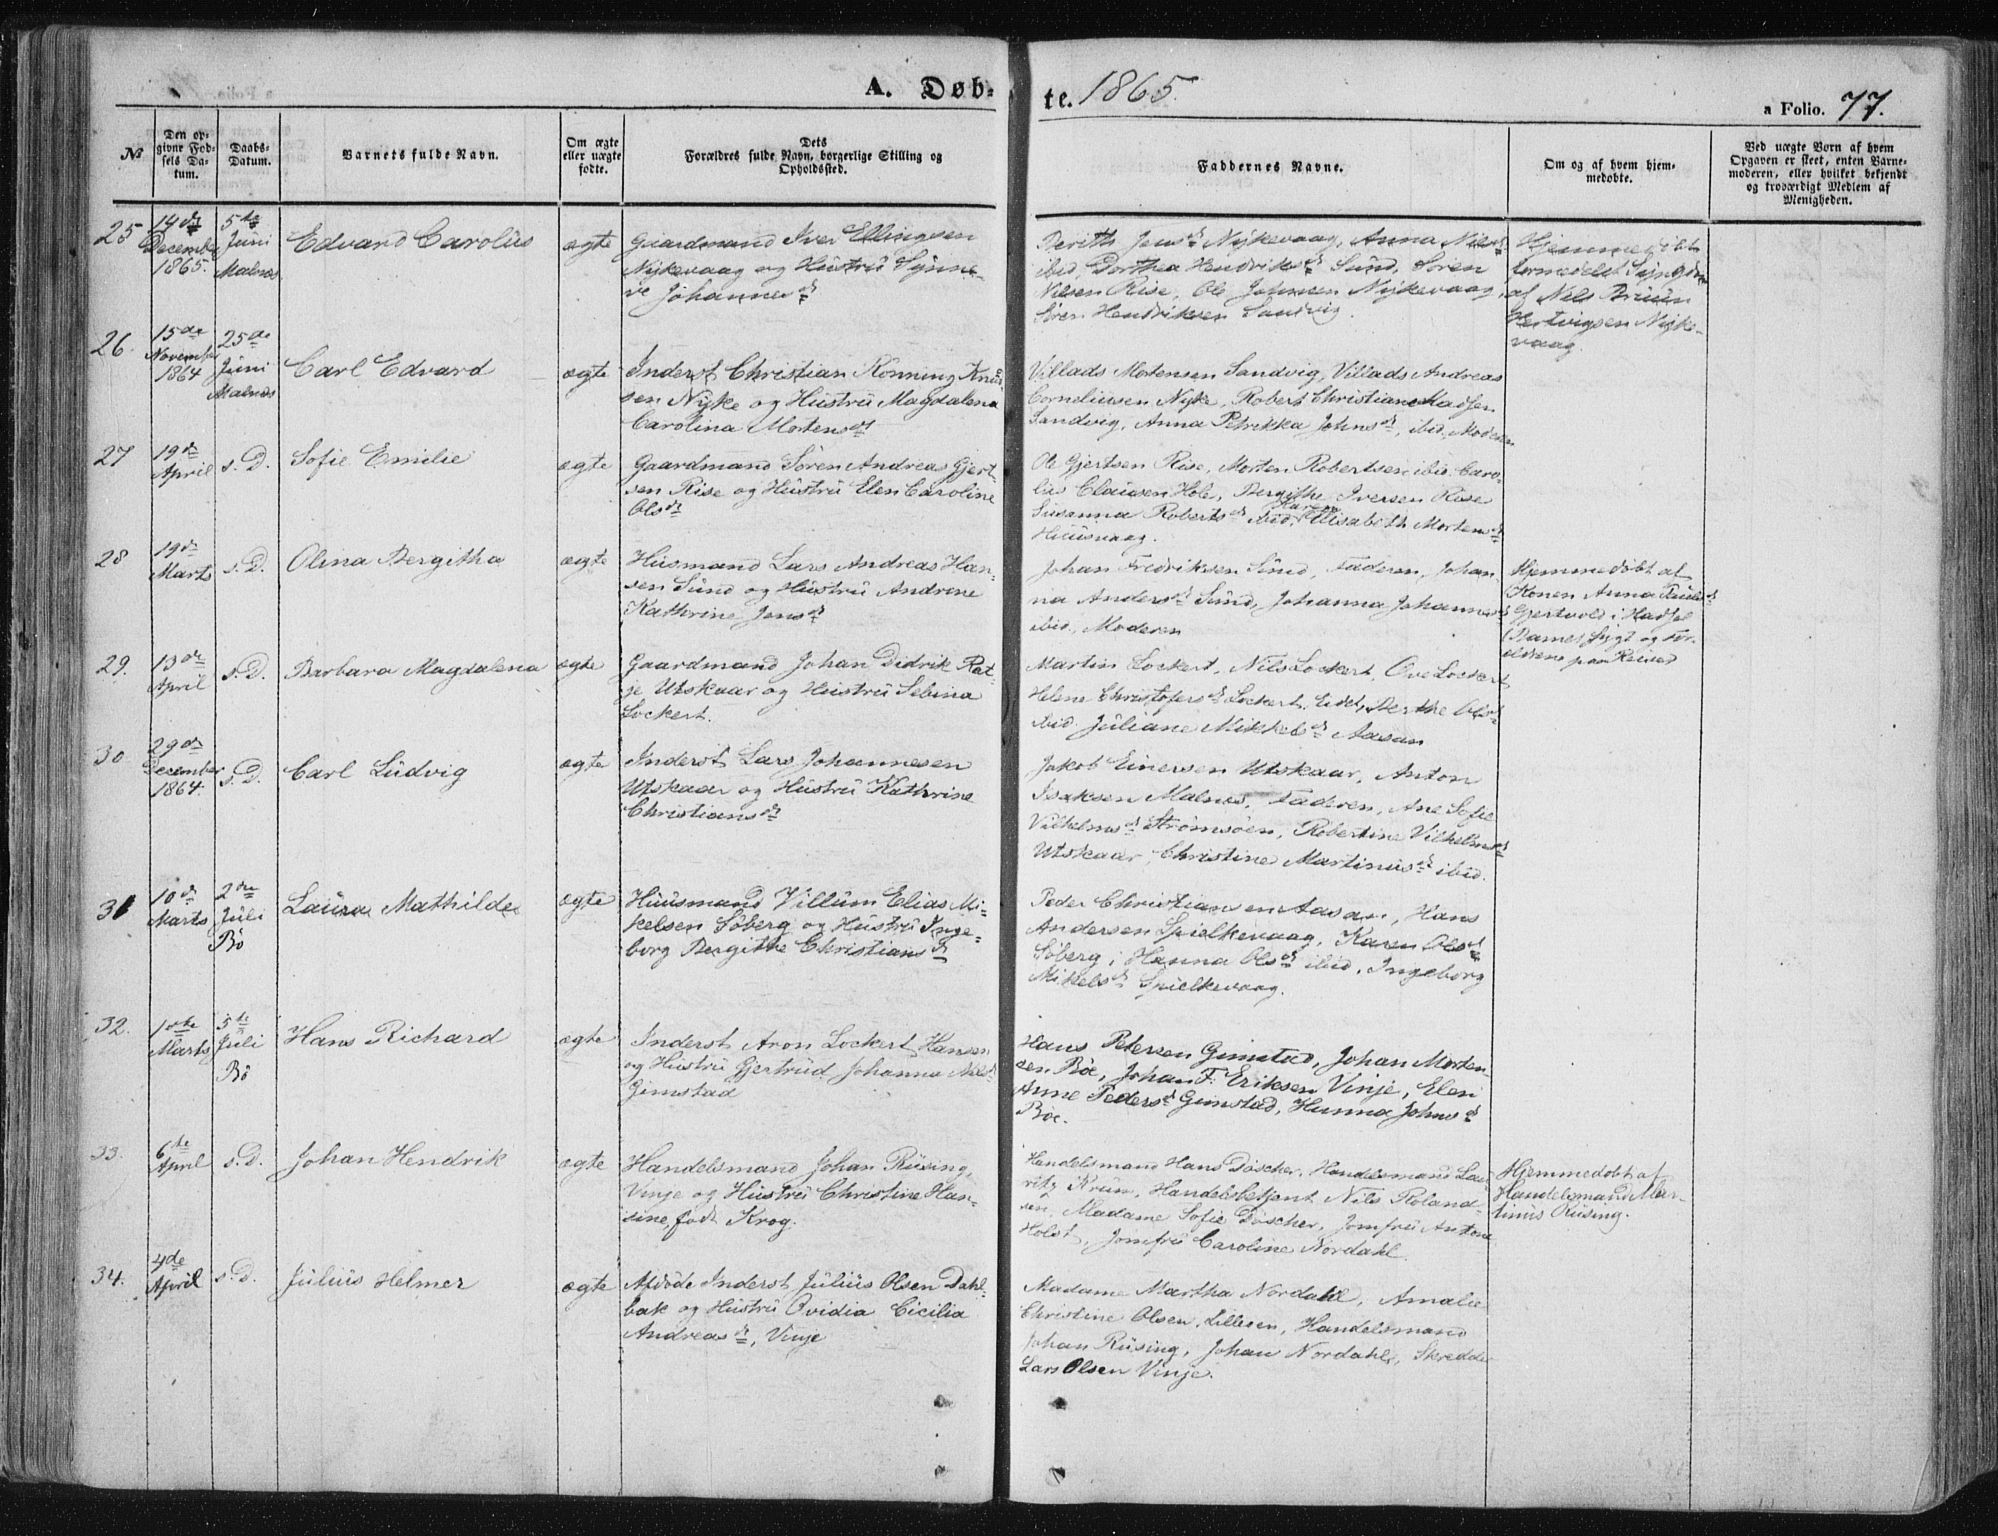 A. Døb-
te. 1865.
a Folio. 77.
№
Den op-
givne Fød-
sels Da-
tum.
Daabs-
Datum.
Barnets fulde Navn.
Om ægte
eller uægte
fødte.
Dets
Forældres fulde Navn, borgerlige Stilling og
Opholdssted.
Faddernes Navne.
Om og af hvem hjem-
medøbte.
Ved uægte Børn af hvem
Opgaven er skeet, enten Barne-
moderen, eller hvilket bekjendt
og troværdigt Medlem af
Menigheden.
25
14de
December
1865.
5te
Juni
Malnes
Edvard Carolüs
ægte
Gaardmand Iver Ellingsen
Nykevaag og Hüstrü Synne-
ve Johannesdr
Berith Jensdr Nykevaag, Anna Nilsdr
ibid, Dorthea Hendriksdr Sünd, Søren
Nilsen Rise, Ole Johnsen Nykevaag,
Søren Hendriksen Sandvig.
Hjemmedøbt
formedelst
af Nils Brüün
Hertvigsen Nyke-
vaag.
26.
15de
November
1864
25de
Jüni
Malnes
Carl Edvard
ægte
Inderst Christian Rönning Knüd-
sen Nyke og Hüstrü Magdalena
Carolina Mortensdr
Villads Mortensen Sandvig, Villads Andreas
Corneliüsen Nyke, Robert Christian Madsen
Sandvig, Anna Petrikka Johnsdr, ibid, Moderen
27
19de
April
s. D.
Sofie Emilie
ægte
Gaardmand Søren Andreas Gjert-
sen Rise og Hüstrü Elen Caroline
Olsdr
Ole Gjertsen Rise, Morten Robertsen ibid. Caro-
lüs Claüsen Hole, Bergithe Iversen Rise
Susanna Robertsdr ibid, Karen Elisabeth Mortensdr
28
19de
Marts
s. D.
Olina Bergitha
ægte
Hüsmand Lars Andreas Han-
sen Sünd og Hüstrü Andrine
Kathrine Jensdr
Johan Fredriksen Sünd, Faderen, Johan
na Andersdr Sünd, Johanna Johannesdr
ibid, Moderen
Hjemmedøbt af
Konen Anna
Gjertvold i Hadsel
(Barnet sygt og For-
ældrene paa Reise)
29.
13de
April
s. D.
Barbara Magdalena
ægte
Gaardmand Johan Didrik Rat-
je Utskaar og Hüstrü Sebina
Lockert.
Martin Lockert, Nils Lockert, Ove Lockert
Helene Christofersdr Lockert, Eidet, Berthe Olsdr
ibid. Jüliane Mikkelsdr Aasan
30.
29de
December
1864.
s. D.
Carl Lüdvig
ægte
Inderst Lars Johannesen
Utskaar og Hüstrü Kathrine
Christiansdr
Jakob Einersen Utskaar, Anton
Isaksen Malnes, Faderen, Ane Sofie
Vilhelmsdr Strømsøen, Robertine Vilhelmsdr
Utskaar, Christine Martinüsdr ibid.
31
10de
Marts
2den
Jüli
Bö
Laüra Mathilde
ægte
Hüüsmand Villüm Elias Mi-
kelsen Søberg og Hüstrü Inge-
borg Bergitte Christiansdr
Peder Christiansen Aasan, Hans
Andersen Spielkevaag, Karen Olsdr
Søberg, Hanna Olsdr ibid, Ingeborg
Mikelsdr Spielkevaag.
32.
1ste
Marts
5te
Jüli
Bö
Hans Richard
ægte
Inderst Aron Lockert Hansen
og Hüstrü Gjertrüd Johanna Nilsdr
Gimstad
Hans Petersen Gimstad, Johan Morten-
sen Böe, Johan F. Eriksen Vinje, Elen
Anne Pedersdr Gimstad, Hanna Johnsdr
Böe.
33.
6te
April
s. D.
Johan Hendrik
ægte
Handelsmand Johan Rüsing,
Vinje og Hüstrü Christine Han-
sine, født Krog.
Handelsmand Hans Döscher, Handelsmand Lau-
ritz Krün, Handelsbetjent Nils Roland-
sen, Madame Sofie Döscher, Jomfrü Antone
Holst, Jomfrü Caroline Nordahl
Hjemmedøbt af
Handelsmand Mar-
tinüs Rüsing.
34.
4de
April
s. D.
Jülüis Helmer
ægte
Afdøde Inderst Jülüis Olsen Dahl-
bak og Hüstrü Ovidia Cicilia
Andreasdr, Vinje
Madame Martha Nordahl, Amalie
Christine Olsen, Lilleeen, Handelsmand
Johan Rüsing, Johan Nordahl, Skredder
Lars Olsen Vinje.